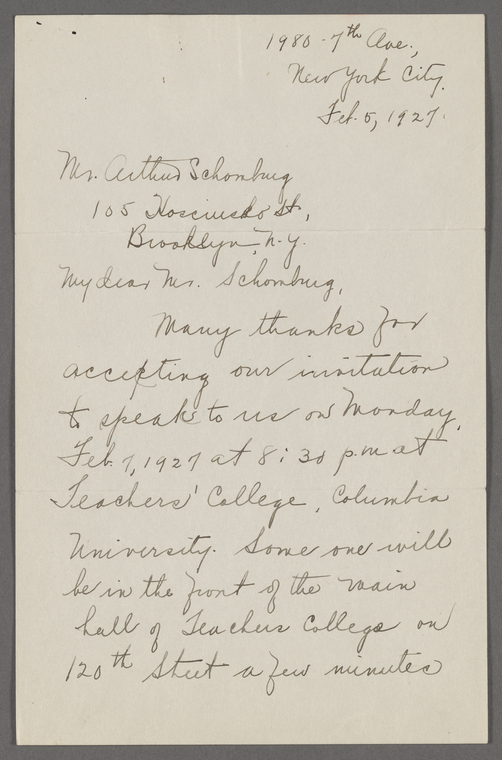 1980-7th Ave.,
New York City.
Feb. 5, 1927.
Mr. Arthur Schomburg
105 Kosciusko St.,
Brooklyn, N.Y.
My dear Mr. Schomburg,
Many thanks for
accepting our invitation
to speak to us on Monday,
Feb. 7, 1927 at 8:30 p.m at
Teachers' College, Columbia
University. Some one will
be in the front of the main
hall of Teachers College on
120th Street a few minutes